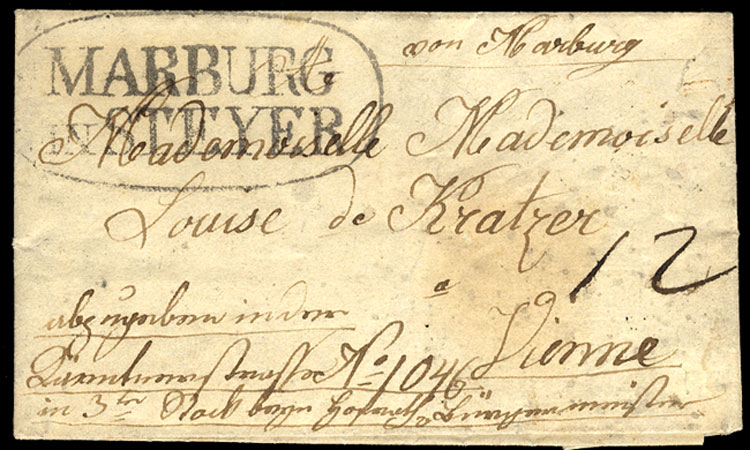 MARBURG
IN STEYER
von Marburg
A Mademoiselle Mademoiselle
Louise de Kratzer
12
a
Vienne
abzugeben in der
Kärntnerstrasse No 1046
in 3ten Stock beym Hofrath Bürgermeister